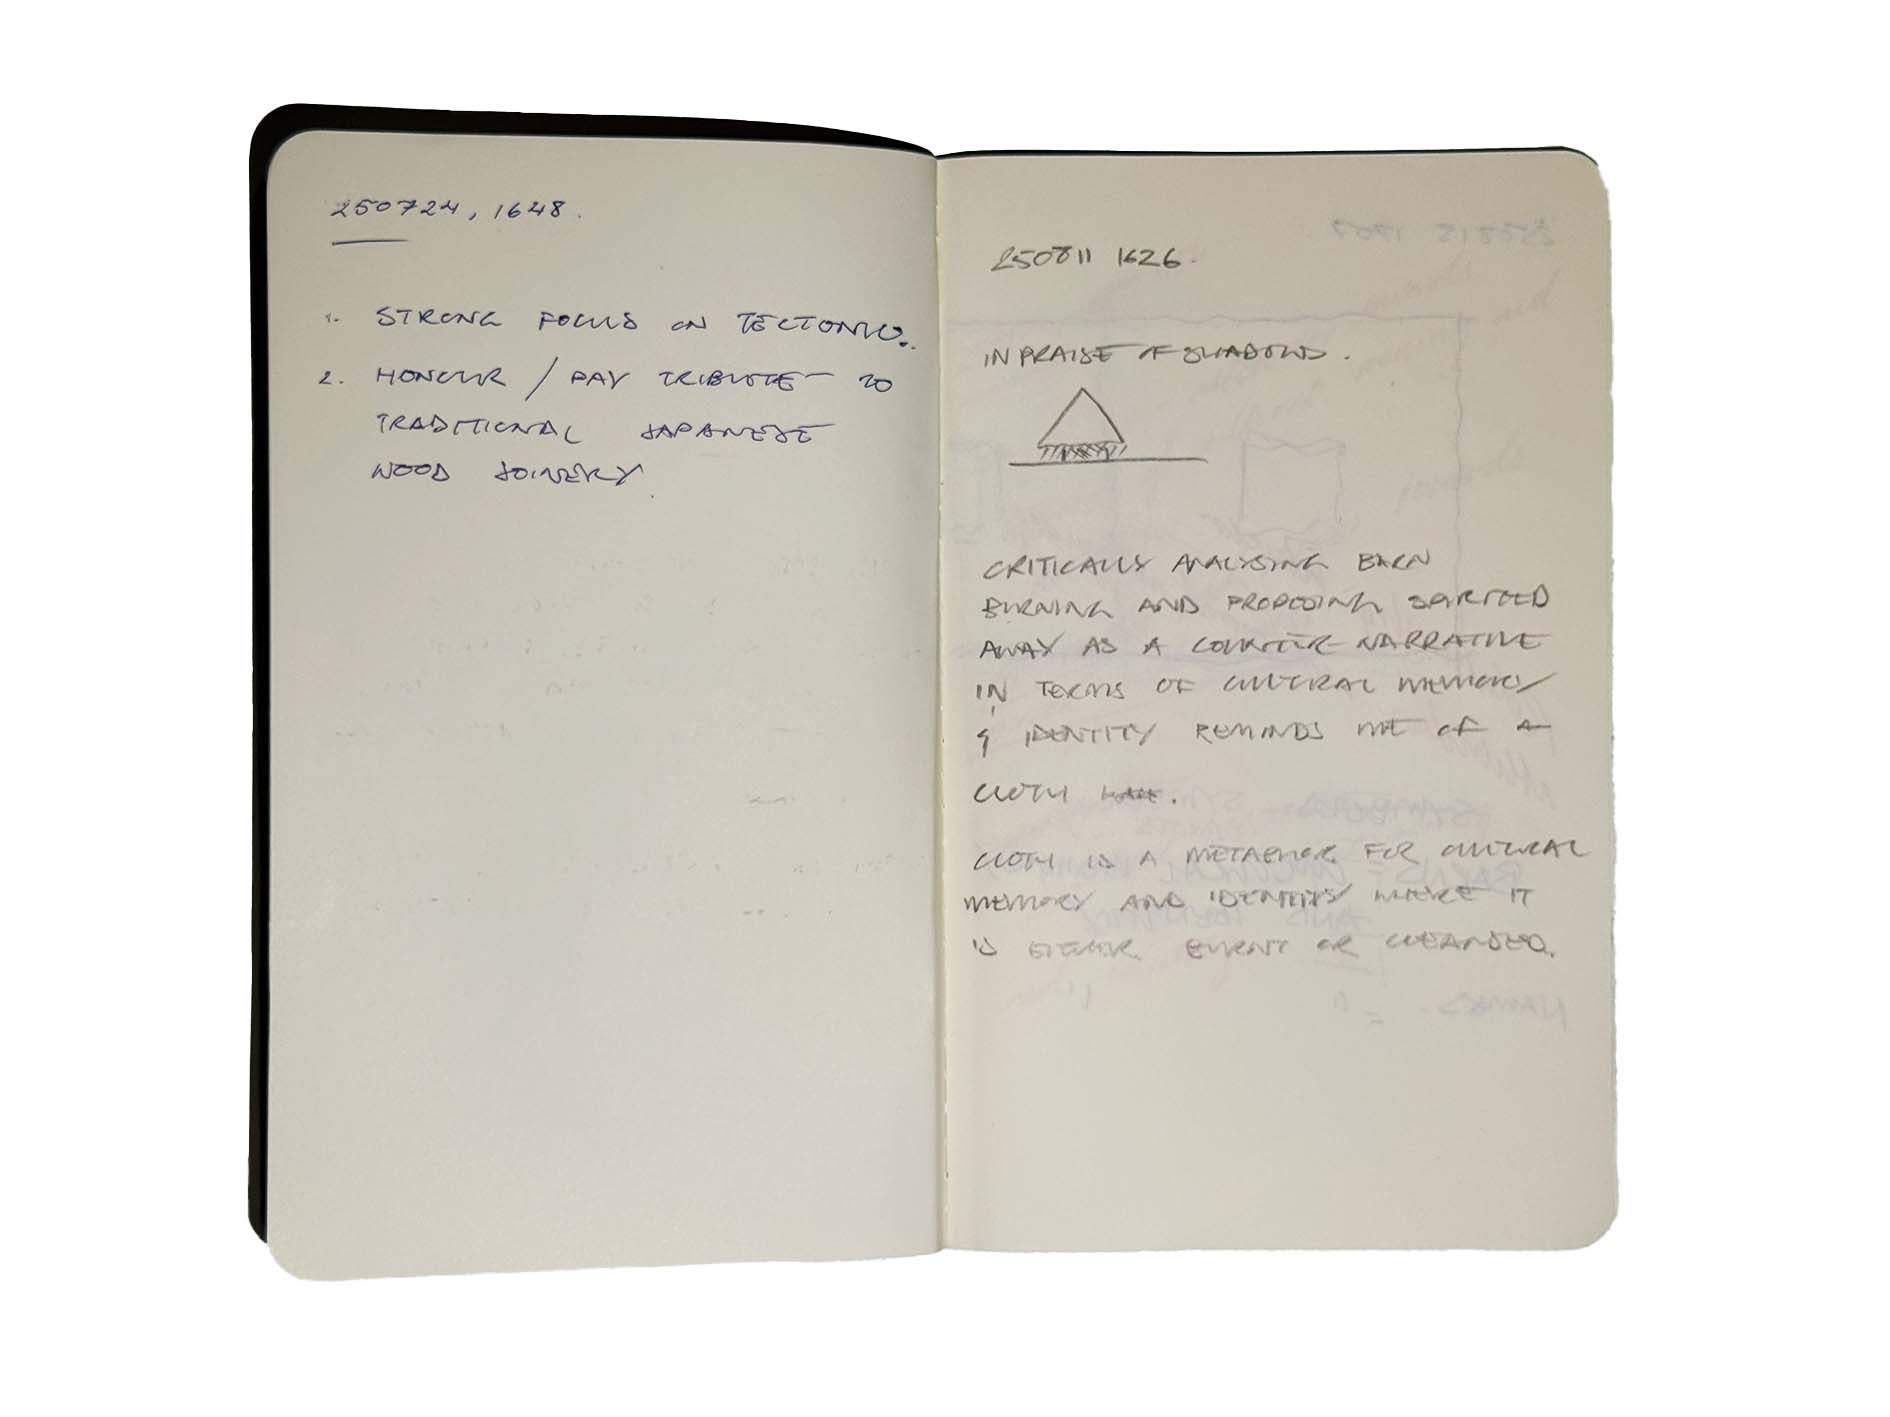 250724, 1648.
1. STRONG FOCUS ON TECTONICS.
2. HONOUR / PAY TRIBUTE TO
TRADITIONAL JAPANESE
WOOD JOINERY.
250811 1626.
IN PRAISE OF SHADOWS.
CRITICALLY ANALYSING BARN
BURNING AND PROPOSING SPIRITED
AWAY AS A COUNTER-NARRATIVE
IN TERMS OF CULTURAL MEMORY
& IDENTITY REMINDS ME OF A
CLOTH
CLOTH IS A METAPHOR FOR CULTURAL
MEMORY AND IDENTITY WHERE IT
IS EITHER BURNT OR CLEANSED.